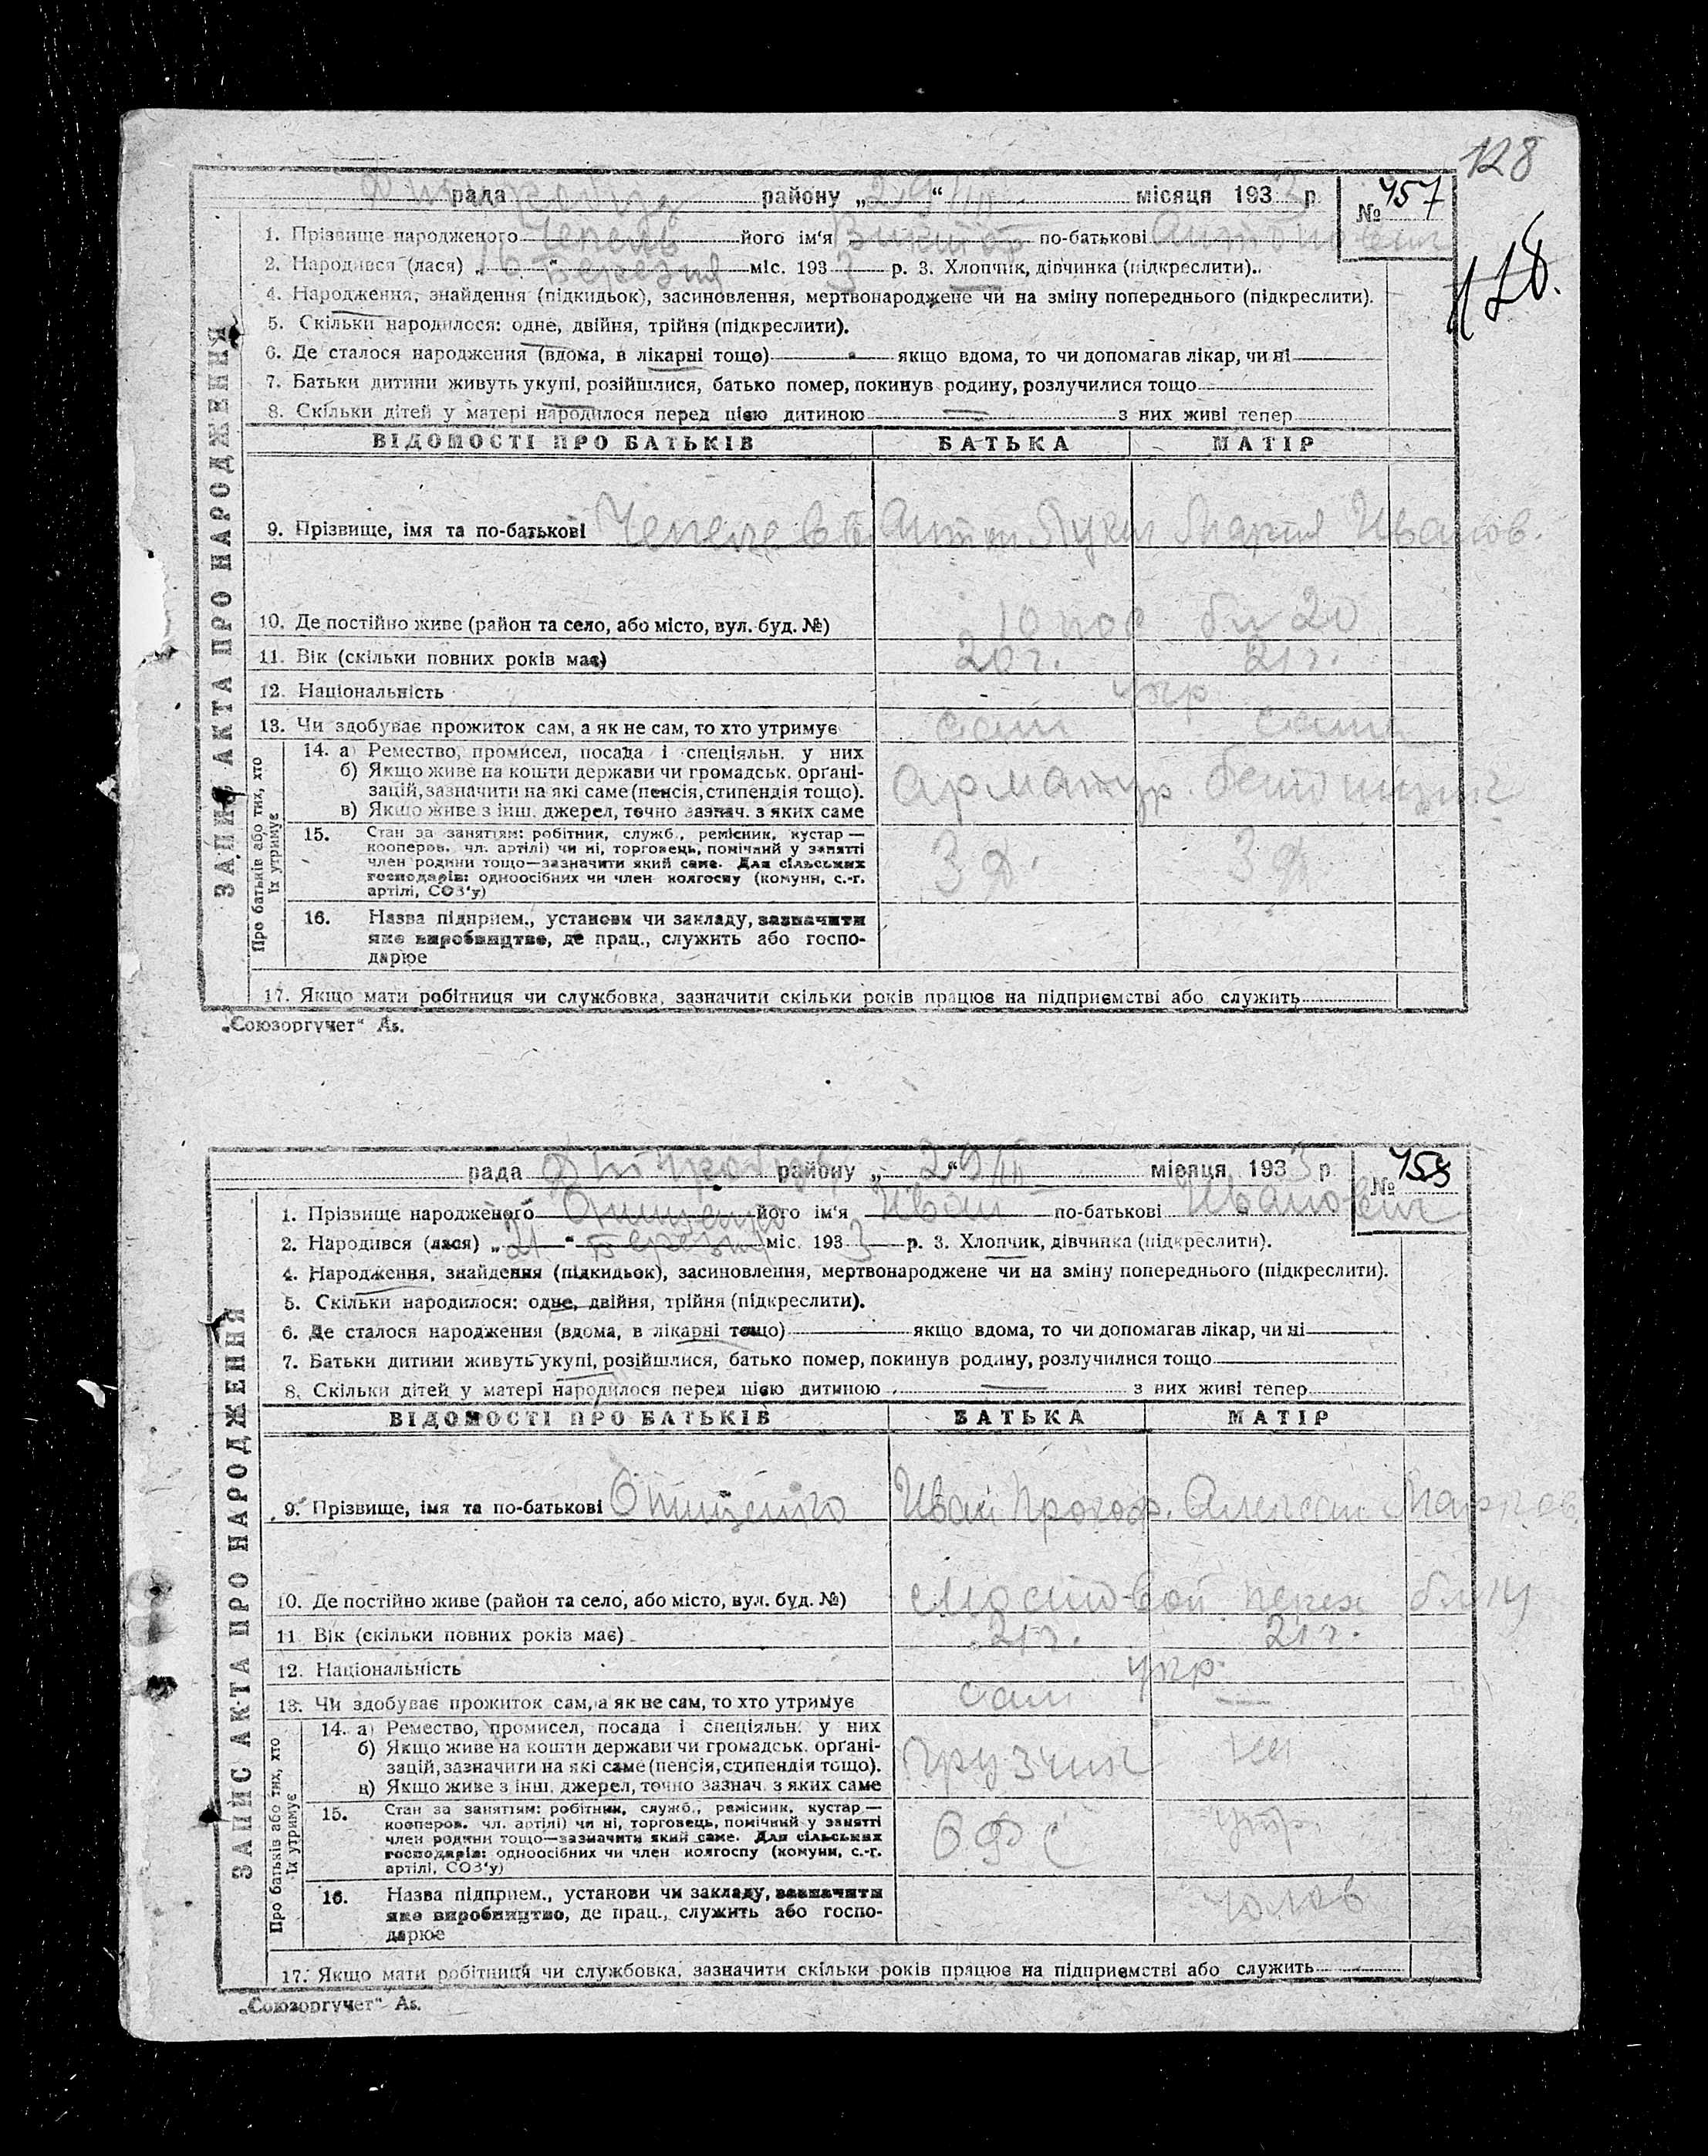 128
рада району „29/III“ місяця 1933 р. № 457
128.
1. Прізвище народженого Чепель його ім‘я Виктор по-батькові Антонович
2. Народився (лася) „16“ Березня міс. 1933 р. 3. Хлопчик, дівчинка (підкреслити).
4. Народження, знайдення (підкидьок), засиновлення, мертвонароджене чи на зміну попереднього (підкреслити).
5. Скільки народилося: одне, двійня, трійня (підкреслити).
6. Де сталося народження (вдома, в лікарні тощо) якщо вдома, то чи допомагав лікар, чи ні
7. Батьки дитини живуть укупі, розійшлися, батько помер, покинув родину, розлучилися тощо
8. Скільки дітей у матері народилося перед цією дитиною — з них живі тепер
ЗАПИС АКТА ПРО НАРОДЖЕННЯ
ВІДОМОСТІ ПРО БАТЬКІВ БАТЬКА МАТІР
9. Прізвище, імя та по-батькові Мария Иванов.
10. Де постійно живе (район та село, або місто, вул. буд. №) 10 пос бл 20
11. Вік (скільки повних років має) 20 г. 21 г.
12. Національність укр
13. Чи здобуває прожиток сам, а як не сам, то хто утримує сам сама
Про батьків або тих, хто їх утримує
14. а) Ремество, промисел, посада і спеціяльн. у них
б) Якщо живе на кошти держави чи громадськ. орґані-
зацій, зазначити на які саме (пенсія, стипендія тощо).
в) Якщо живе з інш. джерел, точно зазнач. з яких саме
Арматур. бетонщик
15. Стан за занятіям: робітник, служб., ремісник, кустар—
кооперов. чл. артілі) чи ні, торговець, помічний у занятті
член родини тощо—зазначити який саме. Для сільських
господарів: одноосібних чи член колгоспу (комуни, с.-г.
артілі, СОЗ‘у)
16. Назва підприєм., установи чи закладу, зазначити
яке виробництво, де прац., служить або госпо-
дарює
17. Якщо мати робітниця чи службовка, зазначити скільки років працює на підприємстві або служить
„Союзоргучет“ А₅.
рада району „29/III“ місяця 1933 р. № 458
1. Прізвище народженого Онищенко його ім‘я Иван по-батькові Иванович
2. Народився (лася) „21“ Березня міс. 1933 р. 3. Хлопчик, дівчинка (підкреслити).
4. Народження, знайдення (підкидьок), засиновлення, мертвонароджене чи на зміну попереднього (підкреслити).
5. Скільки народилося: одне, двійня, трійня (підкреслити).
6. Де сталося народження (вдома, в лікарні тощо) якщо вдома, то чи допомагав лікар, чи ні
7. Батьки дитини живуть укупі, розійшлися, батько помер, покинув родину, розлучилися тощо
8. Скільки дітей у матері народилося перед цією дитиною — з них живі тепер
ЗАПИС АКТА ПРО НАРОДЖЕННЯ
ВІДОМОСТІ ПРО БАТЬКІВ БАТЬКА МАТІР
9. Прізвище, імя та по-батькові Онищенко Иван
10. Де постійно живе (район та село, або місто, вул. буд. №) Мостовой перех
11. Вік (скільки повних років має) 21 г. 21 г.
12. Національність укр.
13. Чи здобуває прожиток сам, а як не сам, то хто утримує сам —
Про батьків або тих, хто їх утримує
14. а) Ремество, промисел, посада і спеціяльн. у них
б) Якщо живе на кошти держави чи громадськ. орґані-
зацій, зазначити на які саме (пенсія, стипендія тощо).
в) Якщо живе з інш. джерел, точно зазнач. з яких саме
Грузчик
15. Стан за занятіям: робітник, служб., ремісник, кустар—
кооперов. чл. артілі) чи ні, торговець, помічний у занятті
член родини тощо—зазначити який саме. Для сільських
господарів: одноосібних чи член колгоспу (комуни, с.-г.
артілі, СОЗ‘у)
16. Назва підприєм., установи чи закладу, зазначити
яке виробництво, де прац., служить або госпо-
дарює
17. Якщо мати робітниця чи службовка, зазначити скільки років працює на підприємстві або служить
„Союзоргучет“ А₅.